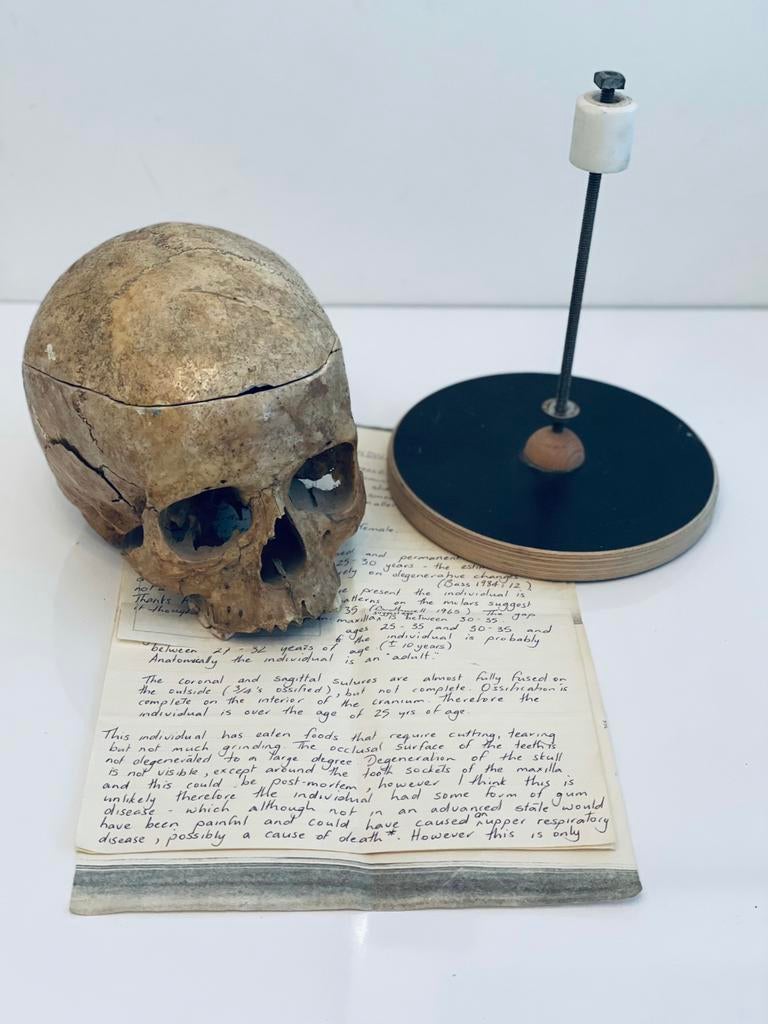 female.
and permanent
25-30 years - the
on degenerative changes
(Bass 1984:12)
present the individual is
Thanks
on the molars suggest
35 (Brothwell 1965) The gap
maxilla is between 30-35.
ages 25-35 and 30-35 and
the individual is probably
between 27 - 32 years of age (± 10 years)
Anatomically the individual is an "adult."
The coronal and sagittal sutures are almost fully fused on
the outside (3/4's ossified), but not complete. Ossification is
complete on the interior of the cranium. Therefore the
individual is over the age of 25 yrs of age.
This individual has eaten foods that require cutting, tearing
but not much grinding. The occlusal surface of the teeth is
not degenerated to a large degree. Degeneration of the skull
is not visible, except around the tooth sockets of the maxilla
and this could be post-mortem, however I think this is
unlikely therefore the individual had some form of gum
disease - which although not in an advanced state would
have been painful and could have caused an upper respiratory
disease, possibly a cause of death*. However this is only